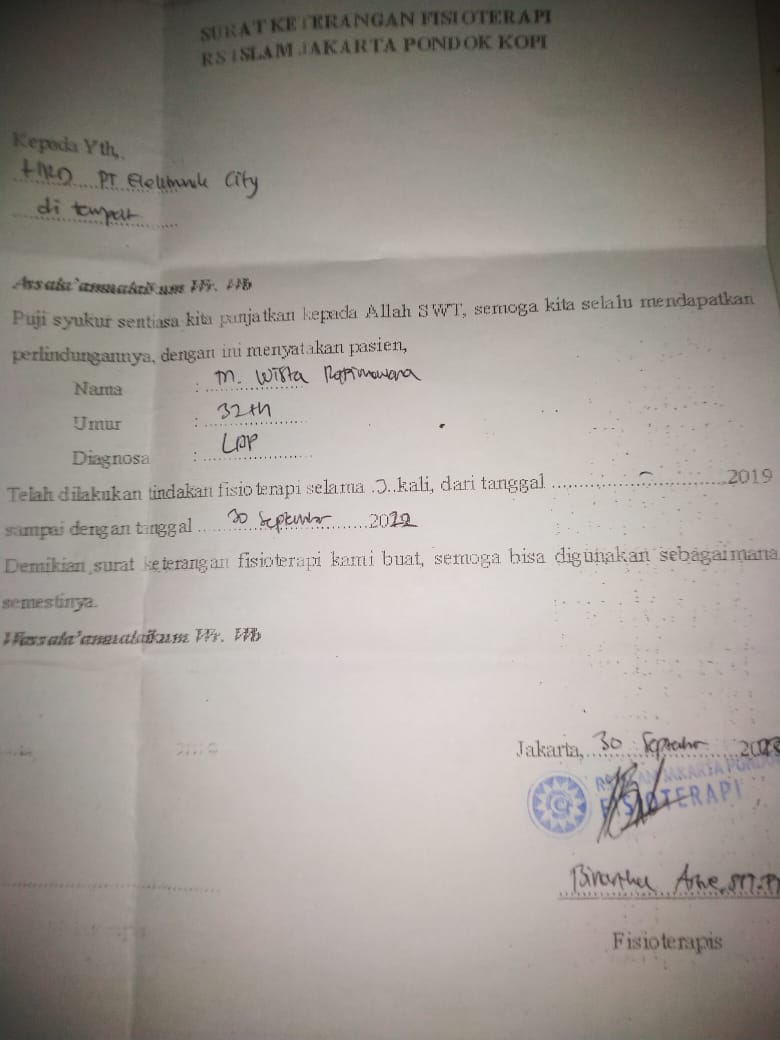 SURAT KETERANGAN FISIOTERAPI
RS ISLAM JAKARTA PONDOK KOPI
Kepada Yth,
HRD PT Elektronik City
di tempat
Assala'amualaikum Wr. Wb
Puji syukur sentiasa kita panjatkan kepada Allah SWT, semoga kita selalu mendapatkan
perlindungannya, dengan ini menyatakan pasien,
Nama : M. Wista
Umur : 32th
Diagnosa : LBP
Telah dilakukan tindakan fisioterapi selama kali, dari tanggal 2019
sampai dengan tanggal 30 September 2022
Demikian surat keterangan fisioterapi kami buat, semoga bisa digunakan sebagaimana
semestinya.
Wassala'amualaikum Wr. Wb
Jakarta, 30 September
FISIOTERAPI
Fisioterapis